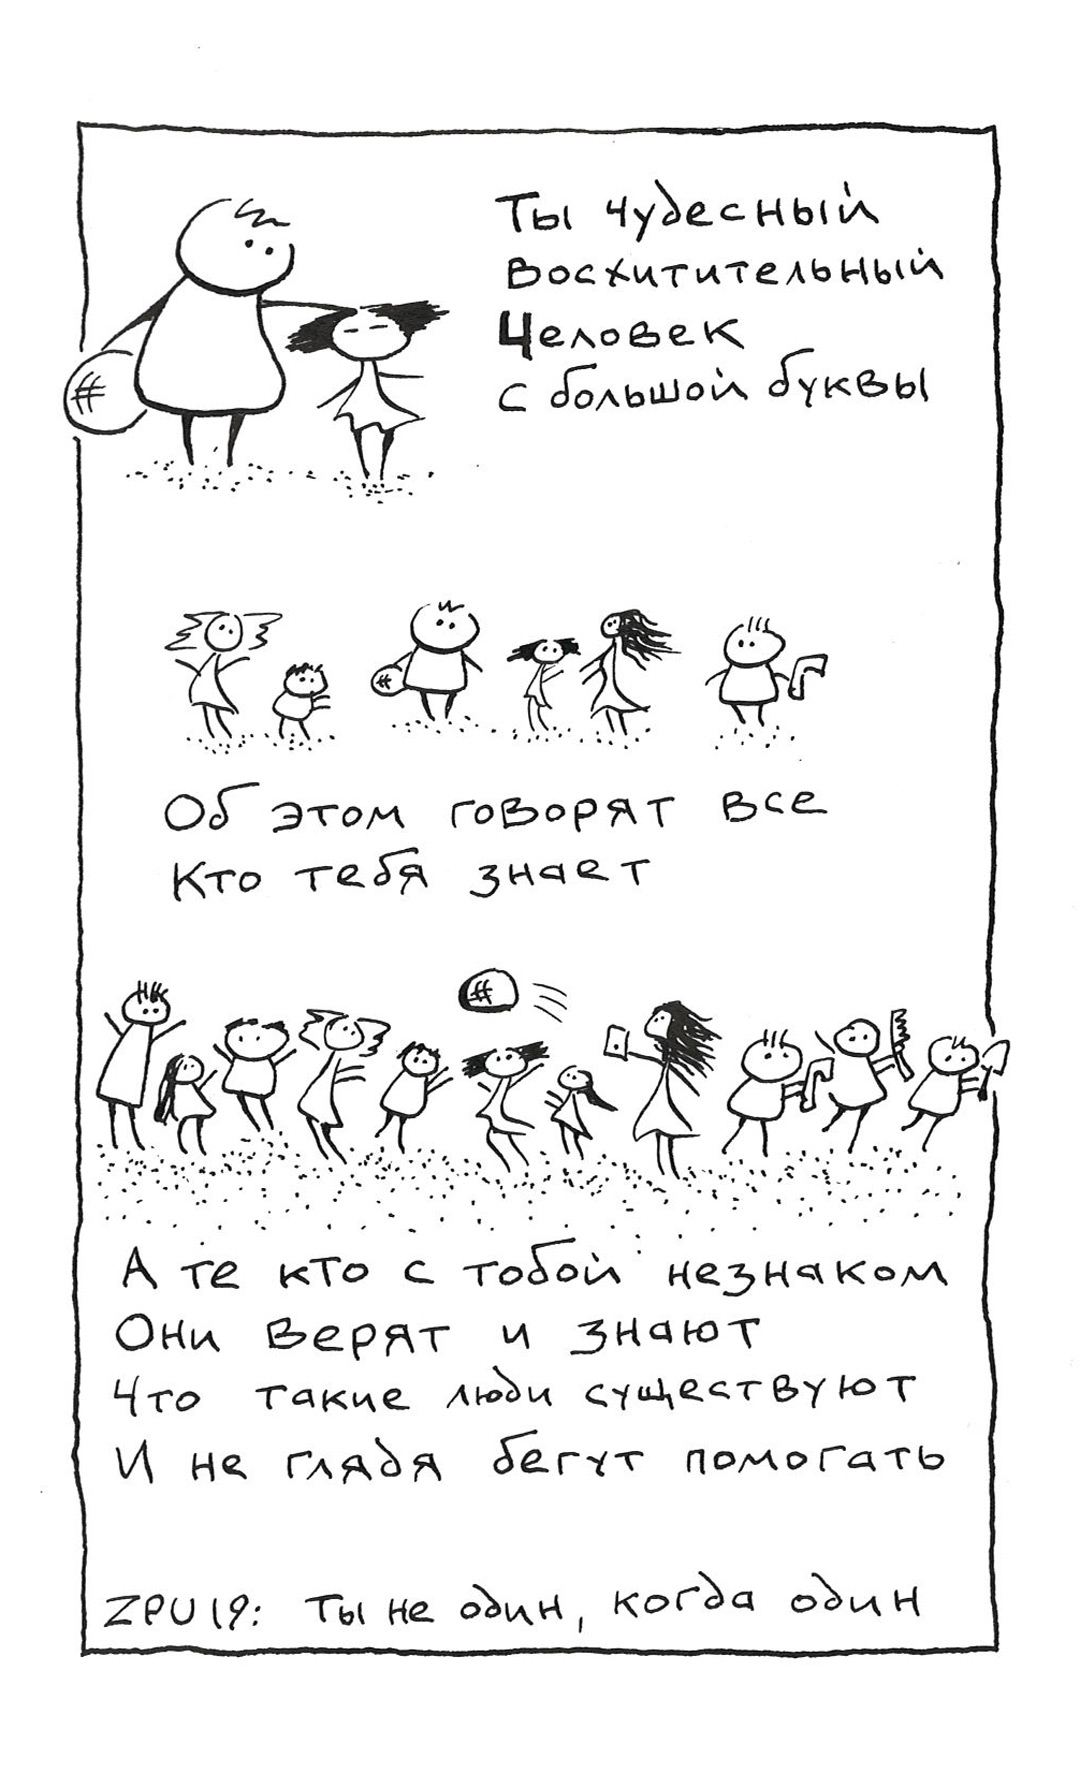 Ты чудесный
восхитительный
Человек
с большой буквы
Об этом говорят все
Кто тебя знает
А те кто с тобой незнаком
Они верят и знают
Что такие люди существуют
И не глядя бегут помогать
ZPU19: Ты не один, когда один